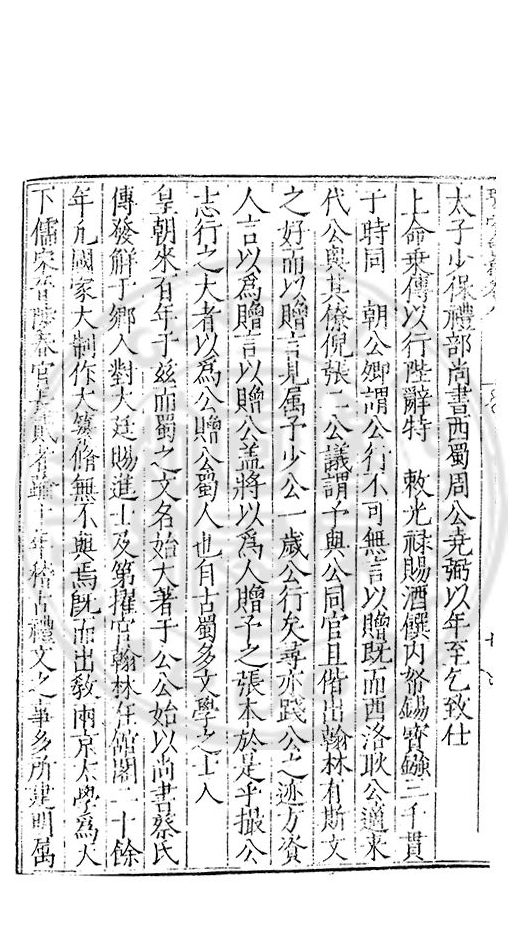 太子少保禮部尚書西蜀周公堯弼以年至乞致仕
上命乗傳以行陛辭特　敕光禄賜酒饌内帑錫寶鏹二千貫
于時同　朝公卿謂公行不可無言以贈既而西洛耿公適來
代公與其僚倪張二公議謂予與公同官且偕出翰林有斯文
之好而以贈言見属予少公一歲公行矣尋亦踐公之迹方資
人言以為贈言以贈公盖將以為人贈予之張本於是乎撮公
志行之大者以為公贈公蜀人也自古蜀多文學之士入
皇朝來百年于兹而蜀之文名始大著于公公始以尚書蔡氏
傳發解于鄉入對大廷賜進士及第擢官翰林在舘閣二十餘
年凡國家大制作大纂脩無不與焉既而出敎两京太學為天
下儒宗晋陟春官長貳者踰十年稽古禮文之事多所建明属